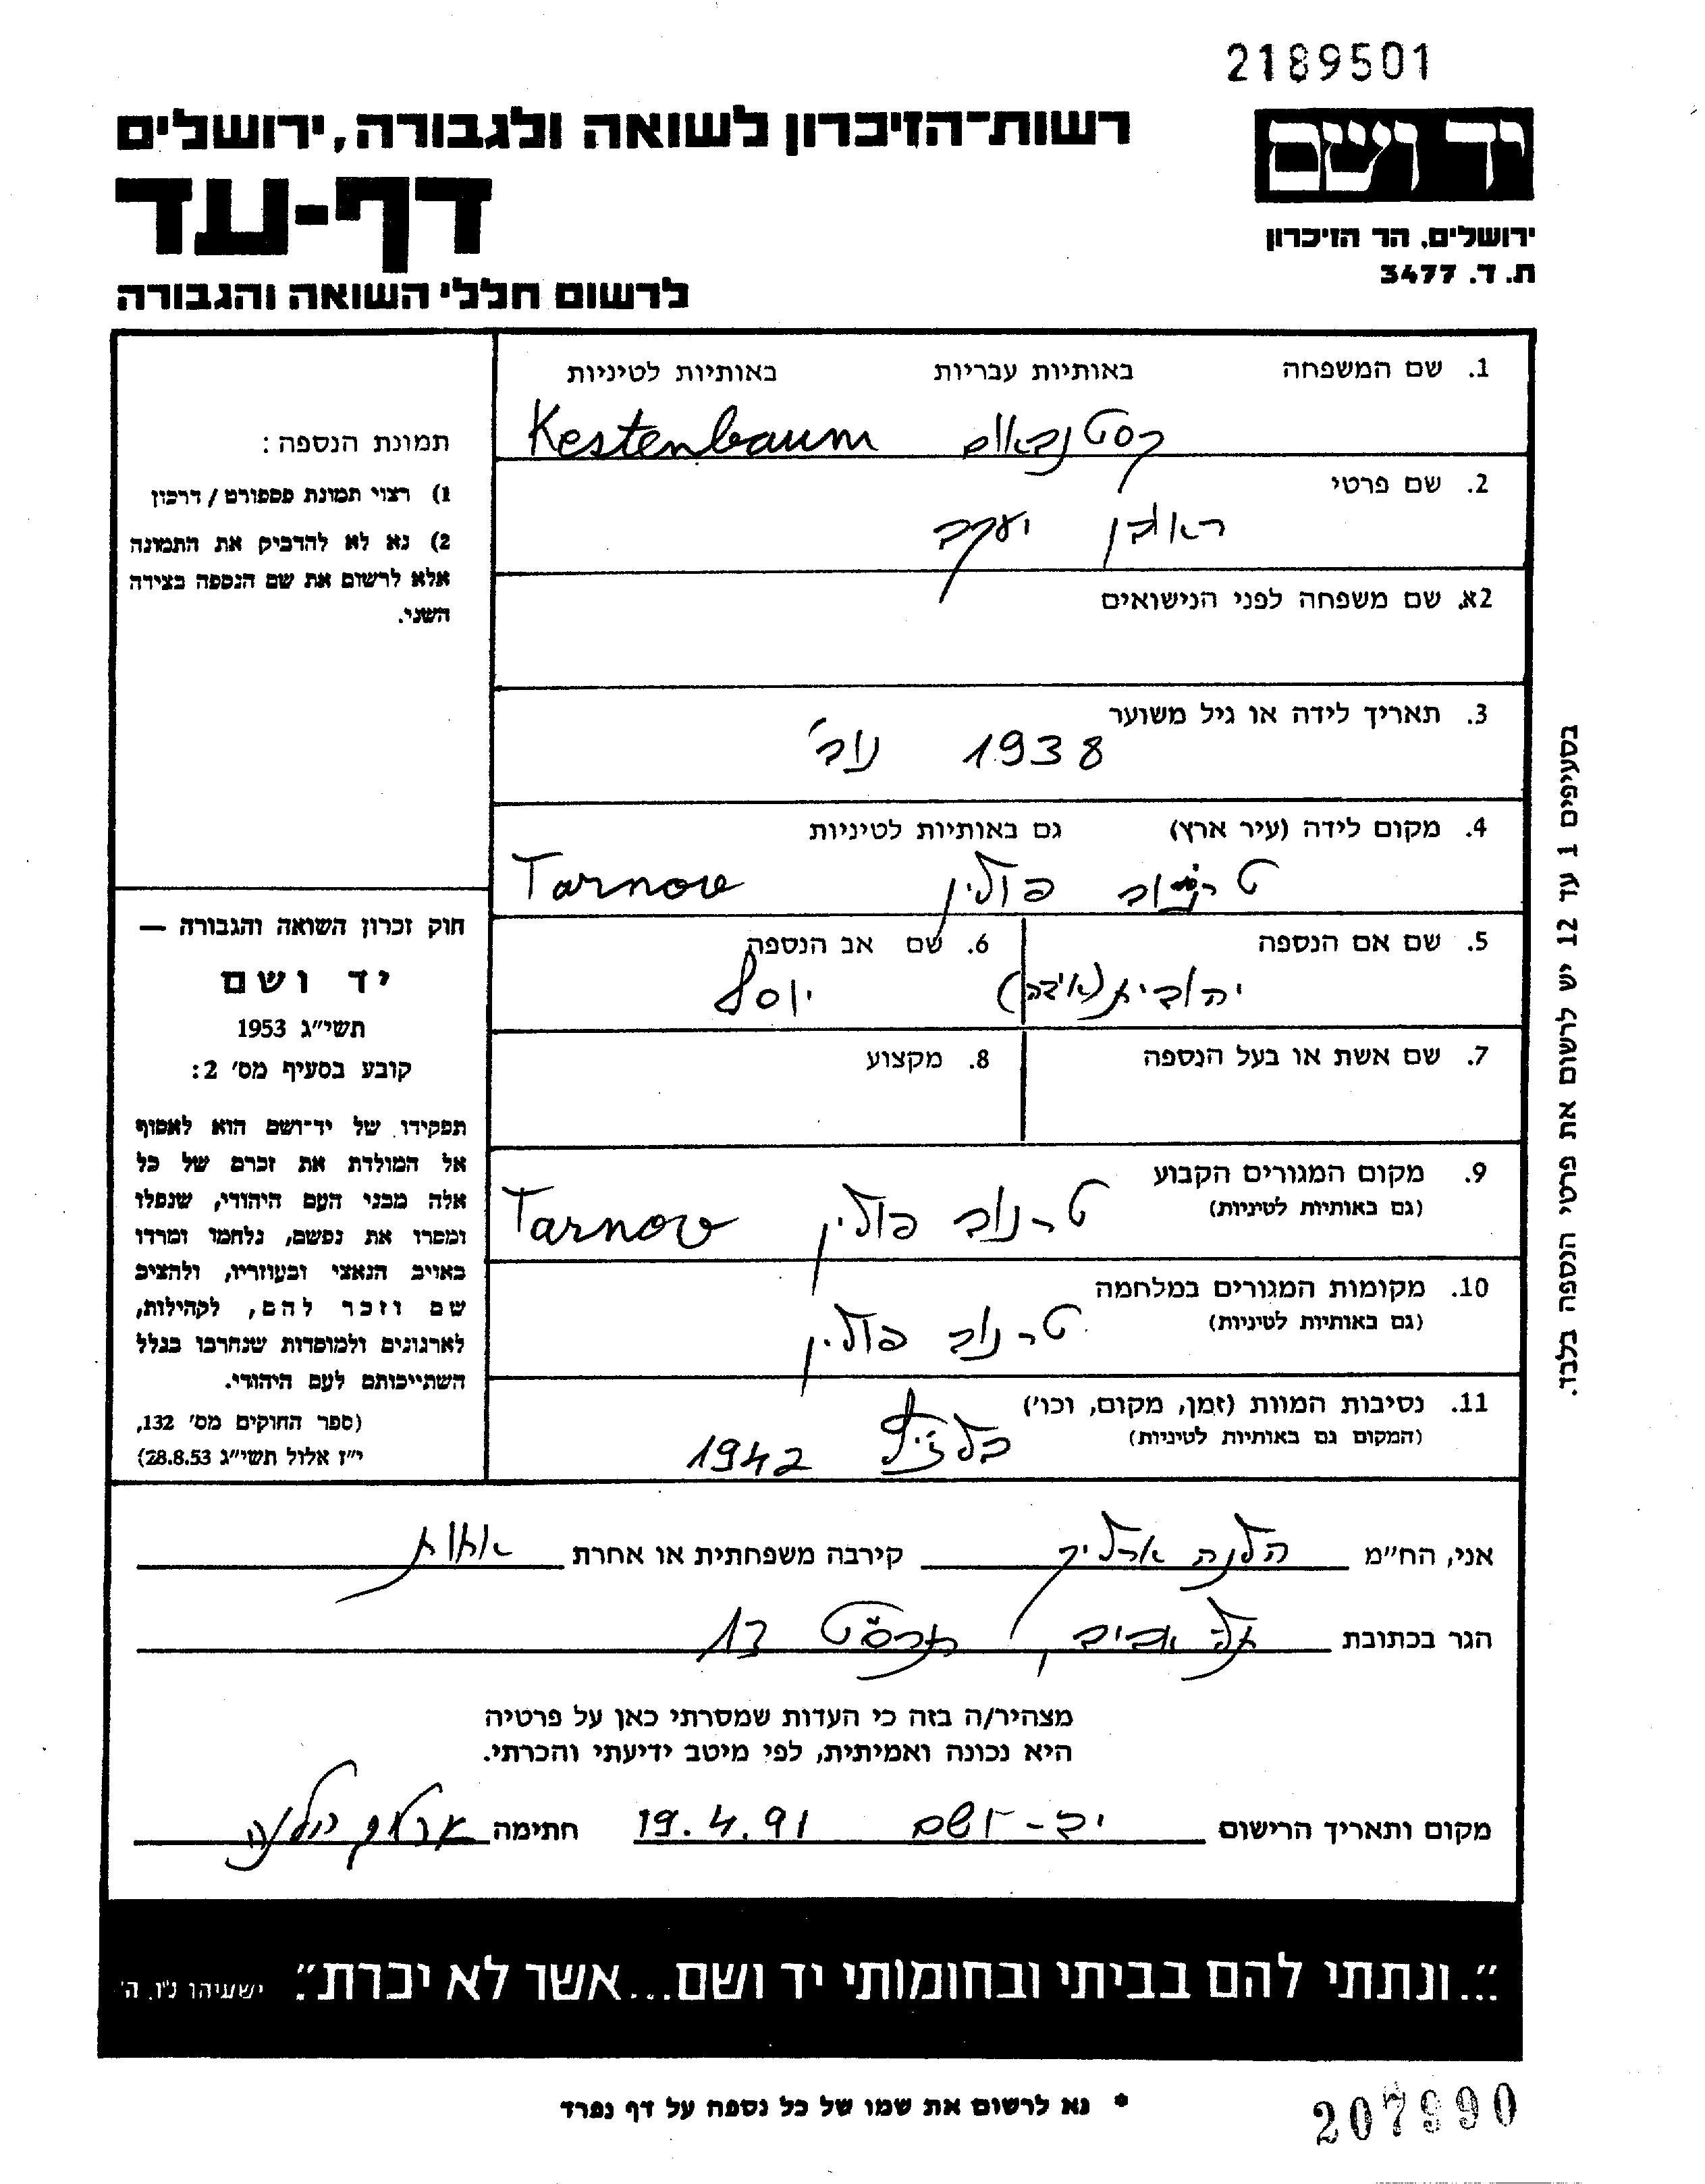 2189501
יד ושם
ירושלים, הר הזיכרון
ת. ד. 3477
רשות־הזיכרון לשואה ולגבורה, ירושלים
דף-עד
לרשום חללי השואה והגבורה
1. שם המשפחה באותיות עבריות באותיות לטיניות
קסטנבאום Kestenbaum
2. שם פרטי
ראובן יעקב
2א. שם משפחה לפני הנישואים
3. תאריך לידה או גיל משוער
1938 נוב'
4. מקום לידה (עיר ארץ) גם באותיות לטיניות
טרנוב פולין Tarnow
5. שם אם הנספה 6. שם אב הנספה
יהודית (אידה) יוסף
7. שם אשת או בעל הנספה 8. מקצוע
9. מקום המגורים הקבוע
(גם באותיות לטיניות)
טרנוב פולין Tarnow
10. מקומות המגורים במלחמה
(גם באותיות לטיניות)
טרנוב פולין
11. נסיבות המוות (זמן, מקום, וכו')
(המקום גם באותיות לטיניות)
בלז'ץ 1942
תמונת הנספה:
1) רצוי תמונת פספורט / דרכון
2) נא לא להדביק את התמונה
אלא לרשום את שם הנספה בצידה
השני.
חוק זכרון השואה והגבורה —
יד ושם
תשי״ג 1953
קובע בסעיף מס׳ 2:
תפקידו של יד־ושם הוא לאסוף
אל המולדת את זכרם של כל
אלה מבני העם היהודי, שנפלו
ומסרו את נפשם, נלחמו ומרדו
באויב הנאצי ובעוזריו, ולהציב
שם וזכר להם, לקהילות,
לארגונים ולמוסדות שנחרבו בגלל
השתייכותם לעם היהודי.
(ספר החוקים מס׳ 132,
י״ז אלול תשי״ג 28.8.53)
בסעיפים 1 עד 12 יש לרשום את פרטי הנספה בלבד.
אני, הח״מ הלנה ארליך קירבה משפחתית או אחרת אחות
הגר בכתובת תל אביב, תרס״ט 13
מצהיר/ה בזה כי העדות שמסרתי כאן על פרטיה
היא נכונה ואמיתית, לפי מיטב ידיעתי והכרתי.
מקום ותאריך הרישום יד-ושם 19.4.91 חתימה ארליך הלנה
״...ונתתי להם בביתי ובחומותי יד ושם...אשר לא יכרת״. ישעיהו נ״ו, ה׳
* נא לרשום את שמו של כל נספה על דף נפרד
207990